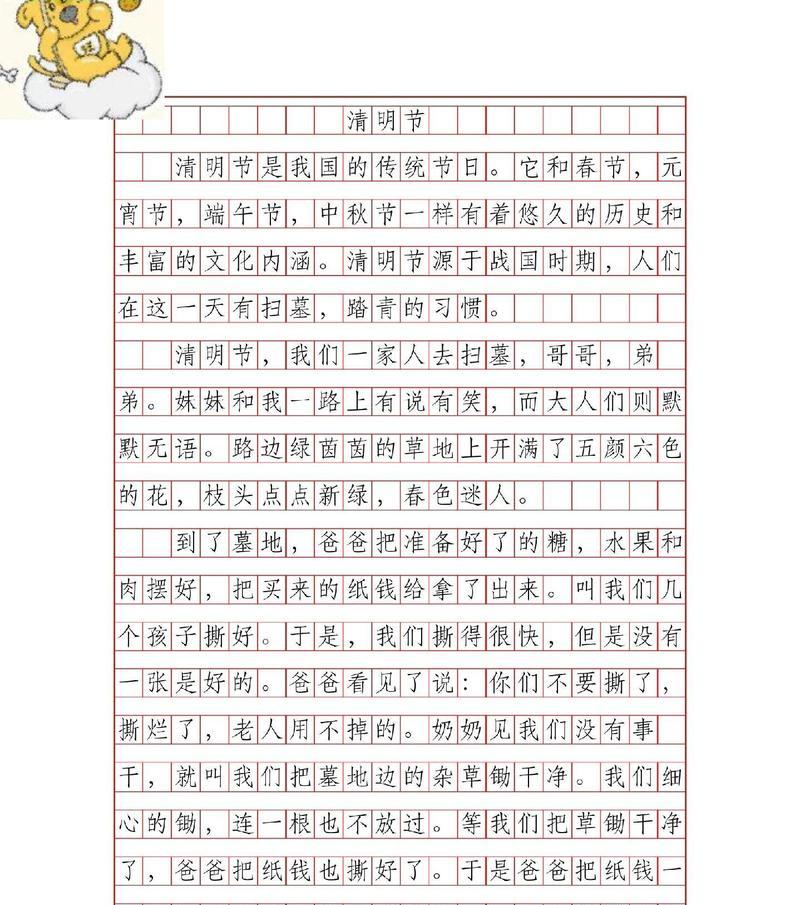 清明节
清明节是我国的传统节日。它和春节，元
宵节，端午节，中秋节一样有着悠久的历史和
丰富的文化内涵。清明节源于战国时期，人们
在这一天有扫墓，踏青的习惯。
清明节，我们一家人去扫墓，哥哥，弟
弟。妹妹和我一路上有说有笑，而大人们则默
默无语。路边绿茵茵的草地上开满了五颜六色
的花，枝头点点新绿，春色迷人。
到了墓地，爸爸把准备好了的糖，水果和
肉摆好，把买来的纸钱给拿了出来。叫我们几
个孩子撕好。于是，我们撕得很快，但是没有
一张是好的。爸爸看见了说：你们不要撕了，
撕烂了，老人用不掉的。奶奶见我们没有事
干，就叫我们把墓地边的杂草锄干净。我们细
心的锄，连一根也不放过。等我们把草锄干净
了，爸爸把纸钱也撕好了。于是爸爸把纸钱一